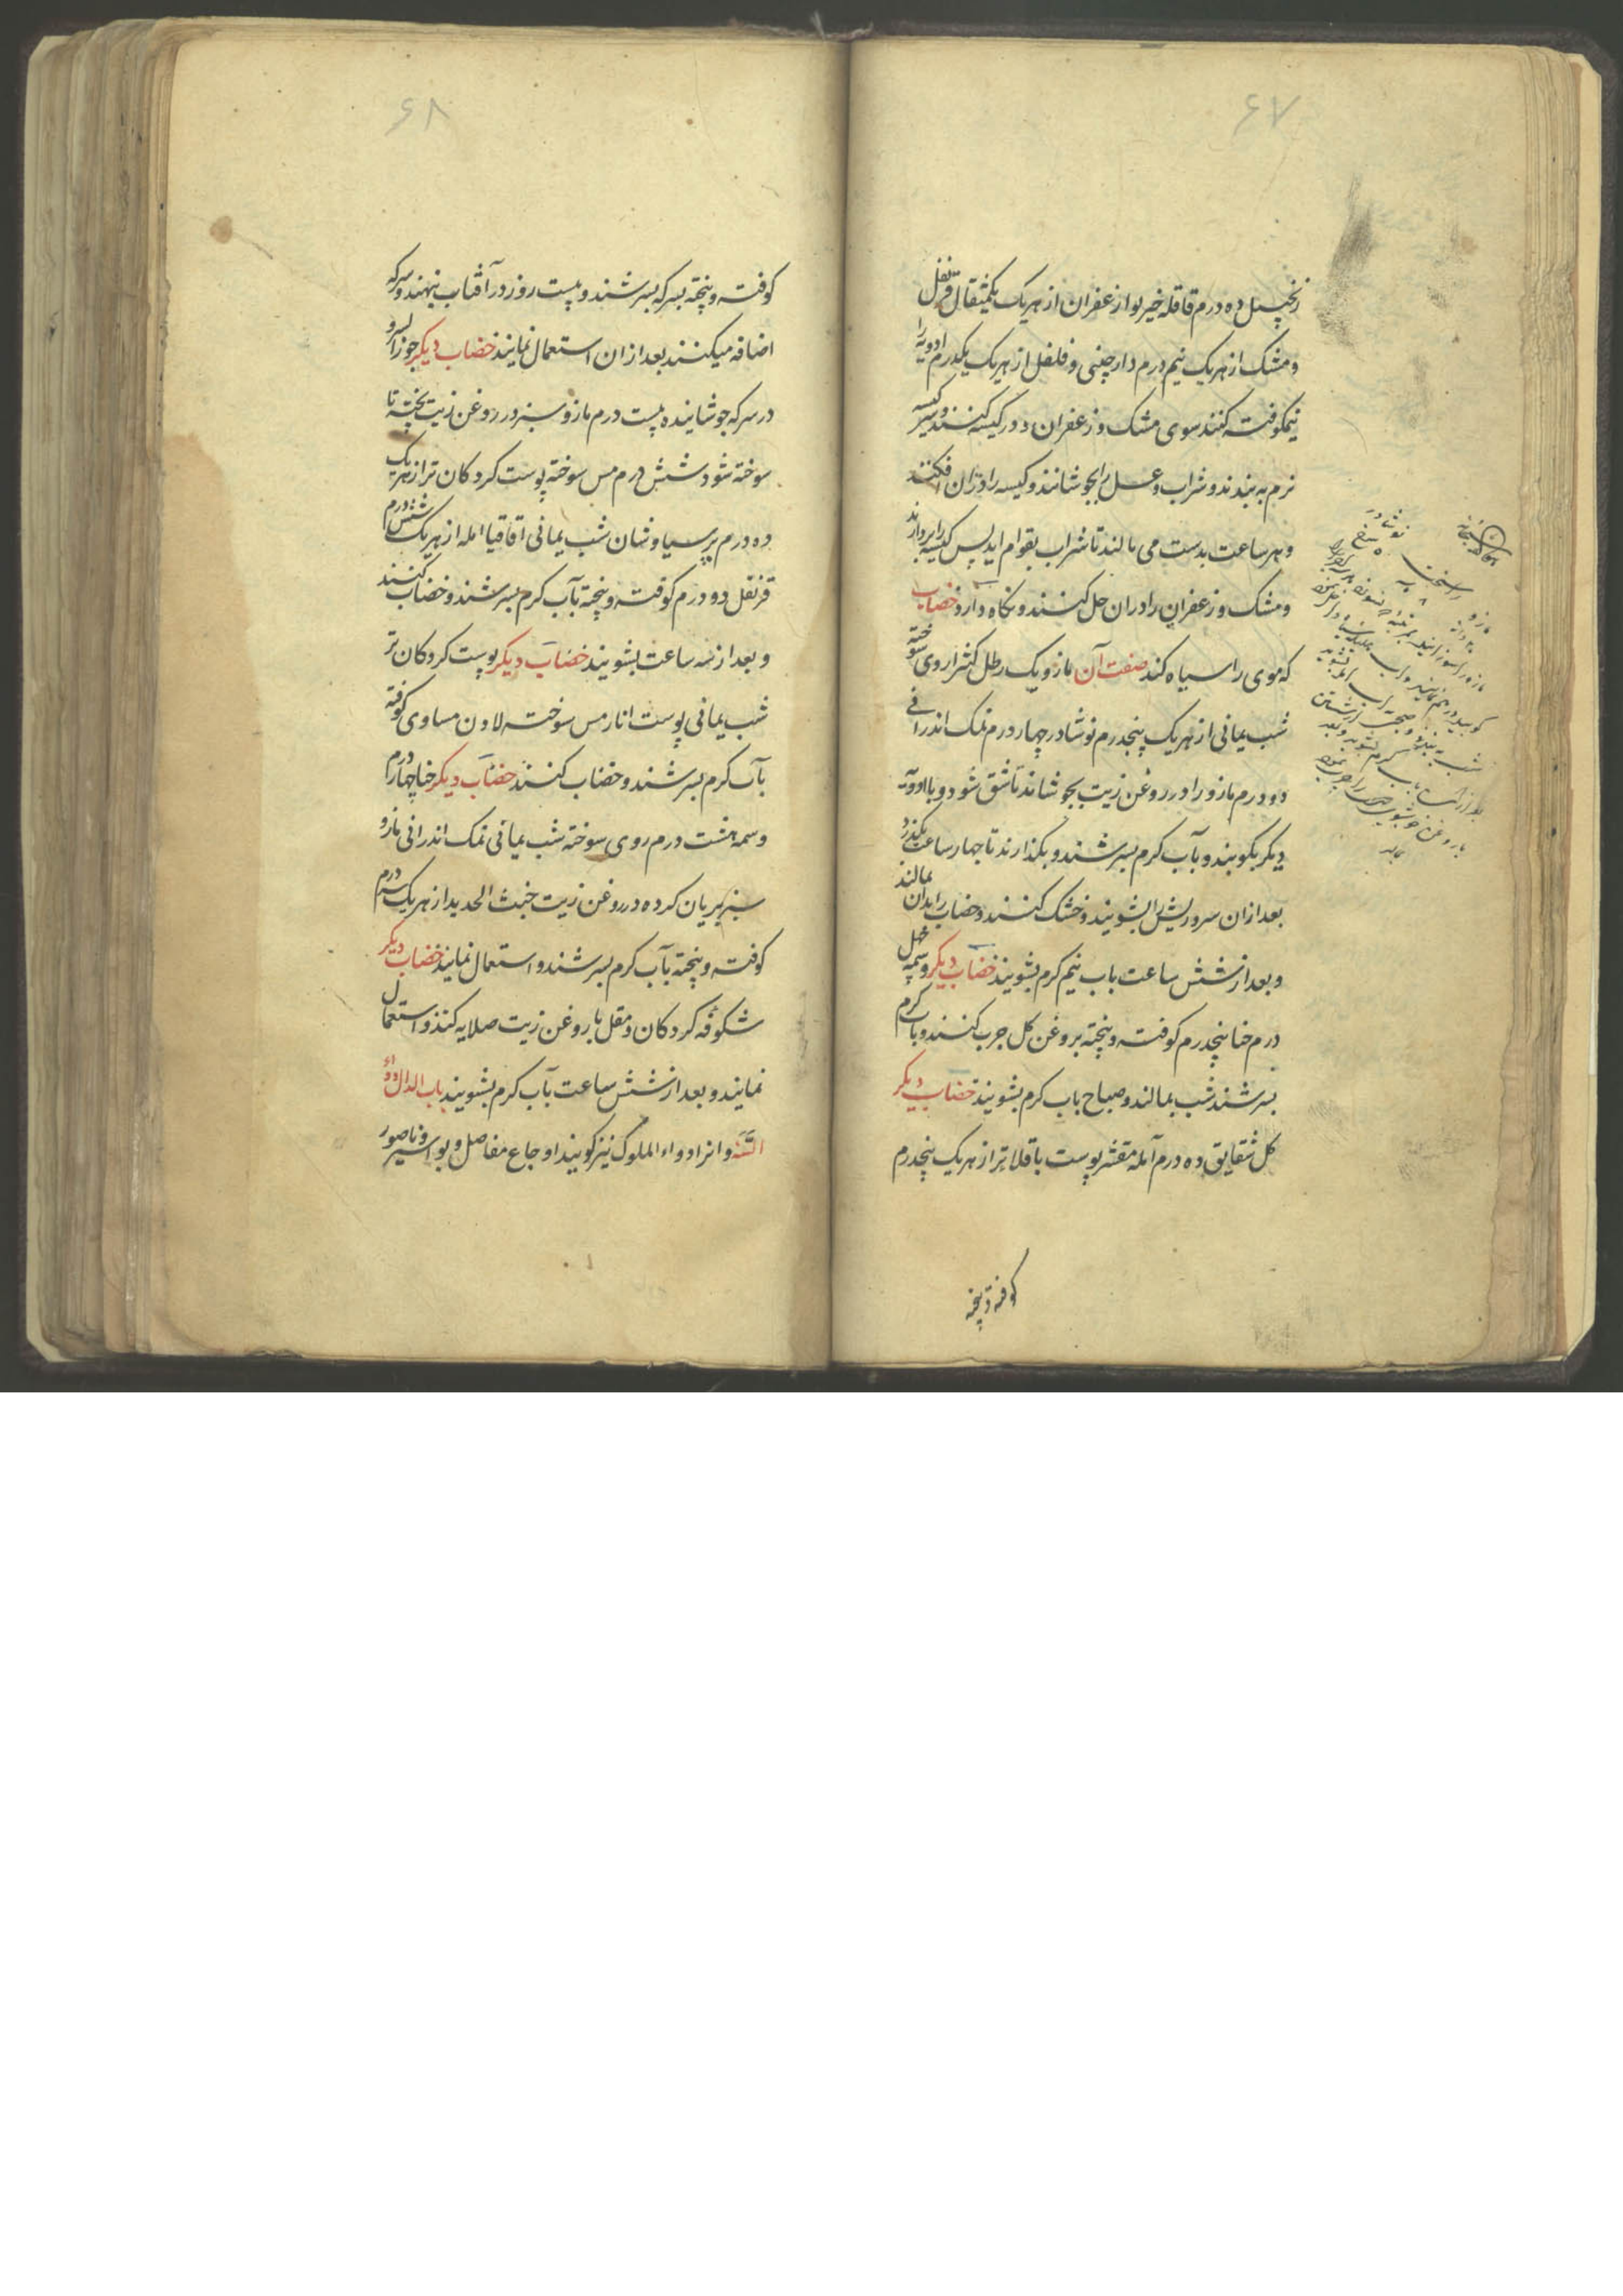 ۶۷
زنجبیل ده درم قاقله خیربوا زعفران از هریک یکمثقال قرنفل
و مشک از هریک نیم درم دارچینی و فلفل از هریک یکدرم ادویه را
نیمکوفته کنند سوی مشک و زعفران و در کیسه کنند و سر کیسه
نرم به بندند و شراب و عسل را بجوشانند و کیسه را دران افکنند
و هر ساعت بدست می مالند تا شراب بقوام اید پس کیسه را بردارند
و مشک و زعفران را دران حل کنند و نکاه دارد خضاب
که موی را سیاه کند صفت آن مازو یک رطل کثیرا روی سوخته
شب یمانی از هریک پنجدرم نوشادر چهار درم نمک اندرانی
دو درم مازو را در روغن زیت بجوشاند تا شق شود و با ادویه
دیکر بکوبند و بآب کرم بسرشند و بکذارند تا چهار ساعت بکذرد
بعد ازان سر و ریش را بشویند و خشک کنند و خضاب را بدان بمالند
و بعد از شش ساعت باب نیم کرم بشویند خضاب دیکر وسمه چهل
درم حنا پنجدرم کوفته و پیخته بروغن کل چرب کنند و باب کرم
بسرشند شب بمالند و صباح باب کرم بشویند خضاب دیکر
کل شقایق ده درم آمله مقشر پوست باقلا تر از هریک پنجدرم
کوفته و پیخته
نوشادر
مازو
۶۸
کوفته و پیخته بسرکه بسرشند و بیست روز در آفتاب بنهند و سرکه
اضافه میکنند بعد ازان استعمال نمایند خضاب دیکر جوز السرو
در سرکه جوشانیده بیست درم مازو سبز در روغن زیت پخته تا
سوخته شود شش درم مس سوخته پوست کردکان تر از هریک
ده درم پرسیاوشان شب یمانی اقاقیا امله از هریک شش درم
قرنفل دو درم کوفته و پیخته بآب کرم بسرشند و خضاب کنند
و بعد از سه ساعت بشویند خضاب دیکر پوست کردکان تر
شب یمانی پوست انار مس سوخته لادن مساوی کوفته
بآب کرم بسرشند و خضاب کنند خضاب دیکر حنا چهار درم
وسمه هشت درم روی سوخته شب یمانی نمک اندرانی مازو
سبز بریان کرده در روغن زیت خبث الحدید از هریک سه درم
کوفته و پیخته بآب کرم بسرشند و استعمال نمایند خضاب دیکر
شکوفه کردکان و مقل با روغن زیت صلایه کنند و استعمال
نمایند و بعد از شش ساعت بآب کرم بشویند باب الدال دواء
السنه و انرا دواء الملوک نیز کویند اوجاع مفاصل و بواسیر و ناصور